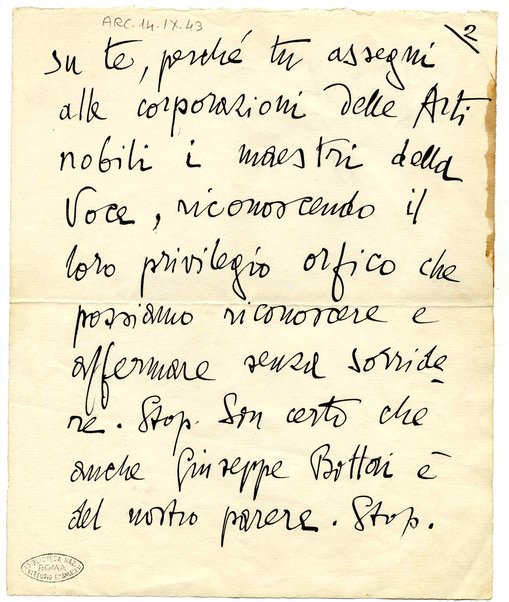 ARC.14.IX.43
2
su te, perché tu assegni
alle corporazioni delle Arti
nobili i maestri della
Voce, riconoscendo il
loro privilegio orfico che
possiamo riconoscere e
affermare senza sorride
re. Stop. Son certo che
anche Giuseppe Bottai è
del nostro parere. Stop.
BIBLIOTECA NAZ.
ROMA
VITTORIO EMANUELE